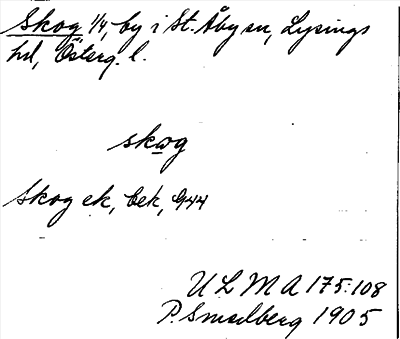 Skog 1/4, by i St. Åby sn, Lysings
hd, Österg. l.
skog
Skog ek, bek, G44
U L M A 175:108
P. Smedberg 1905